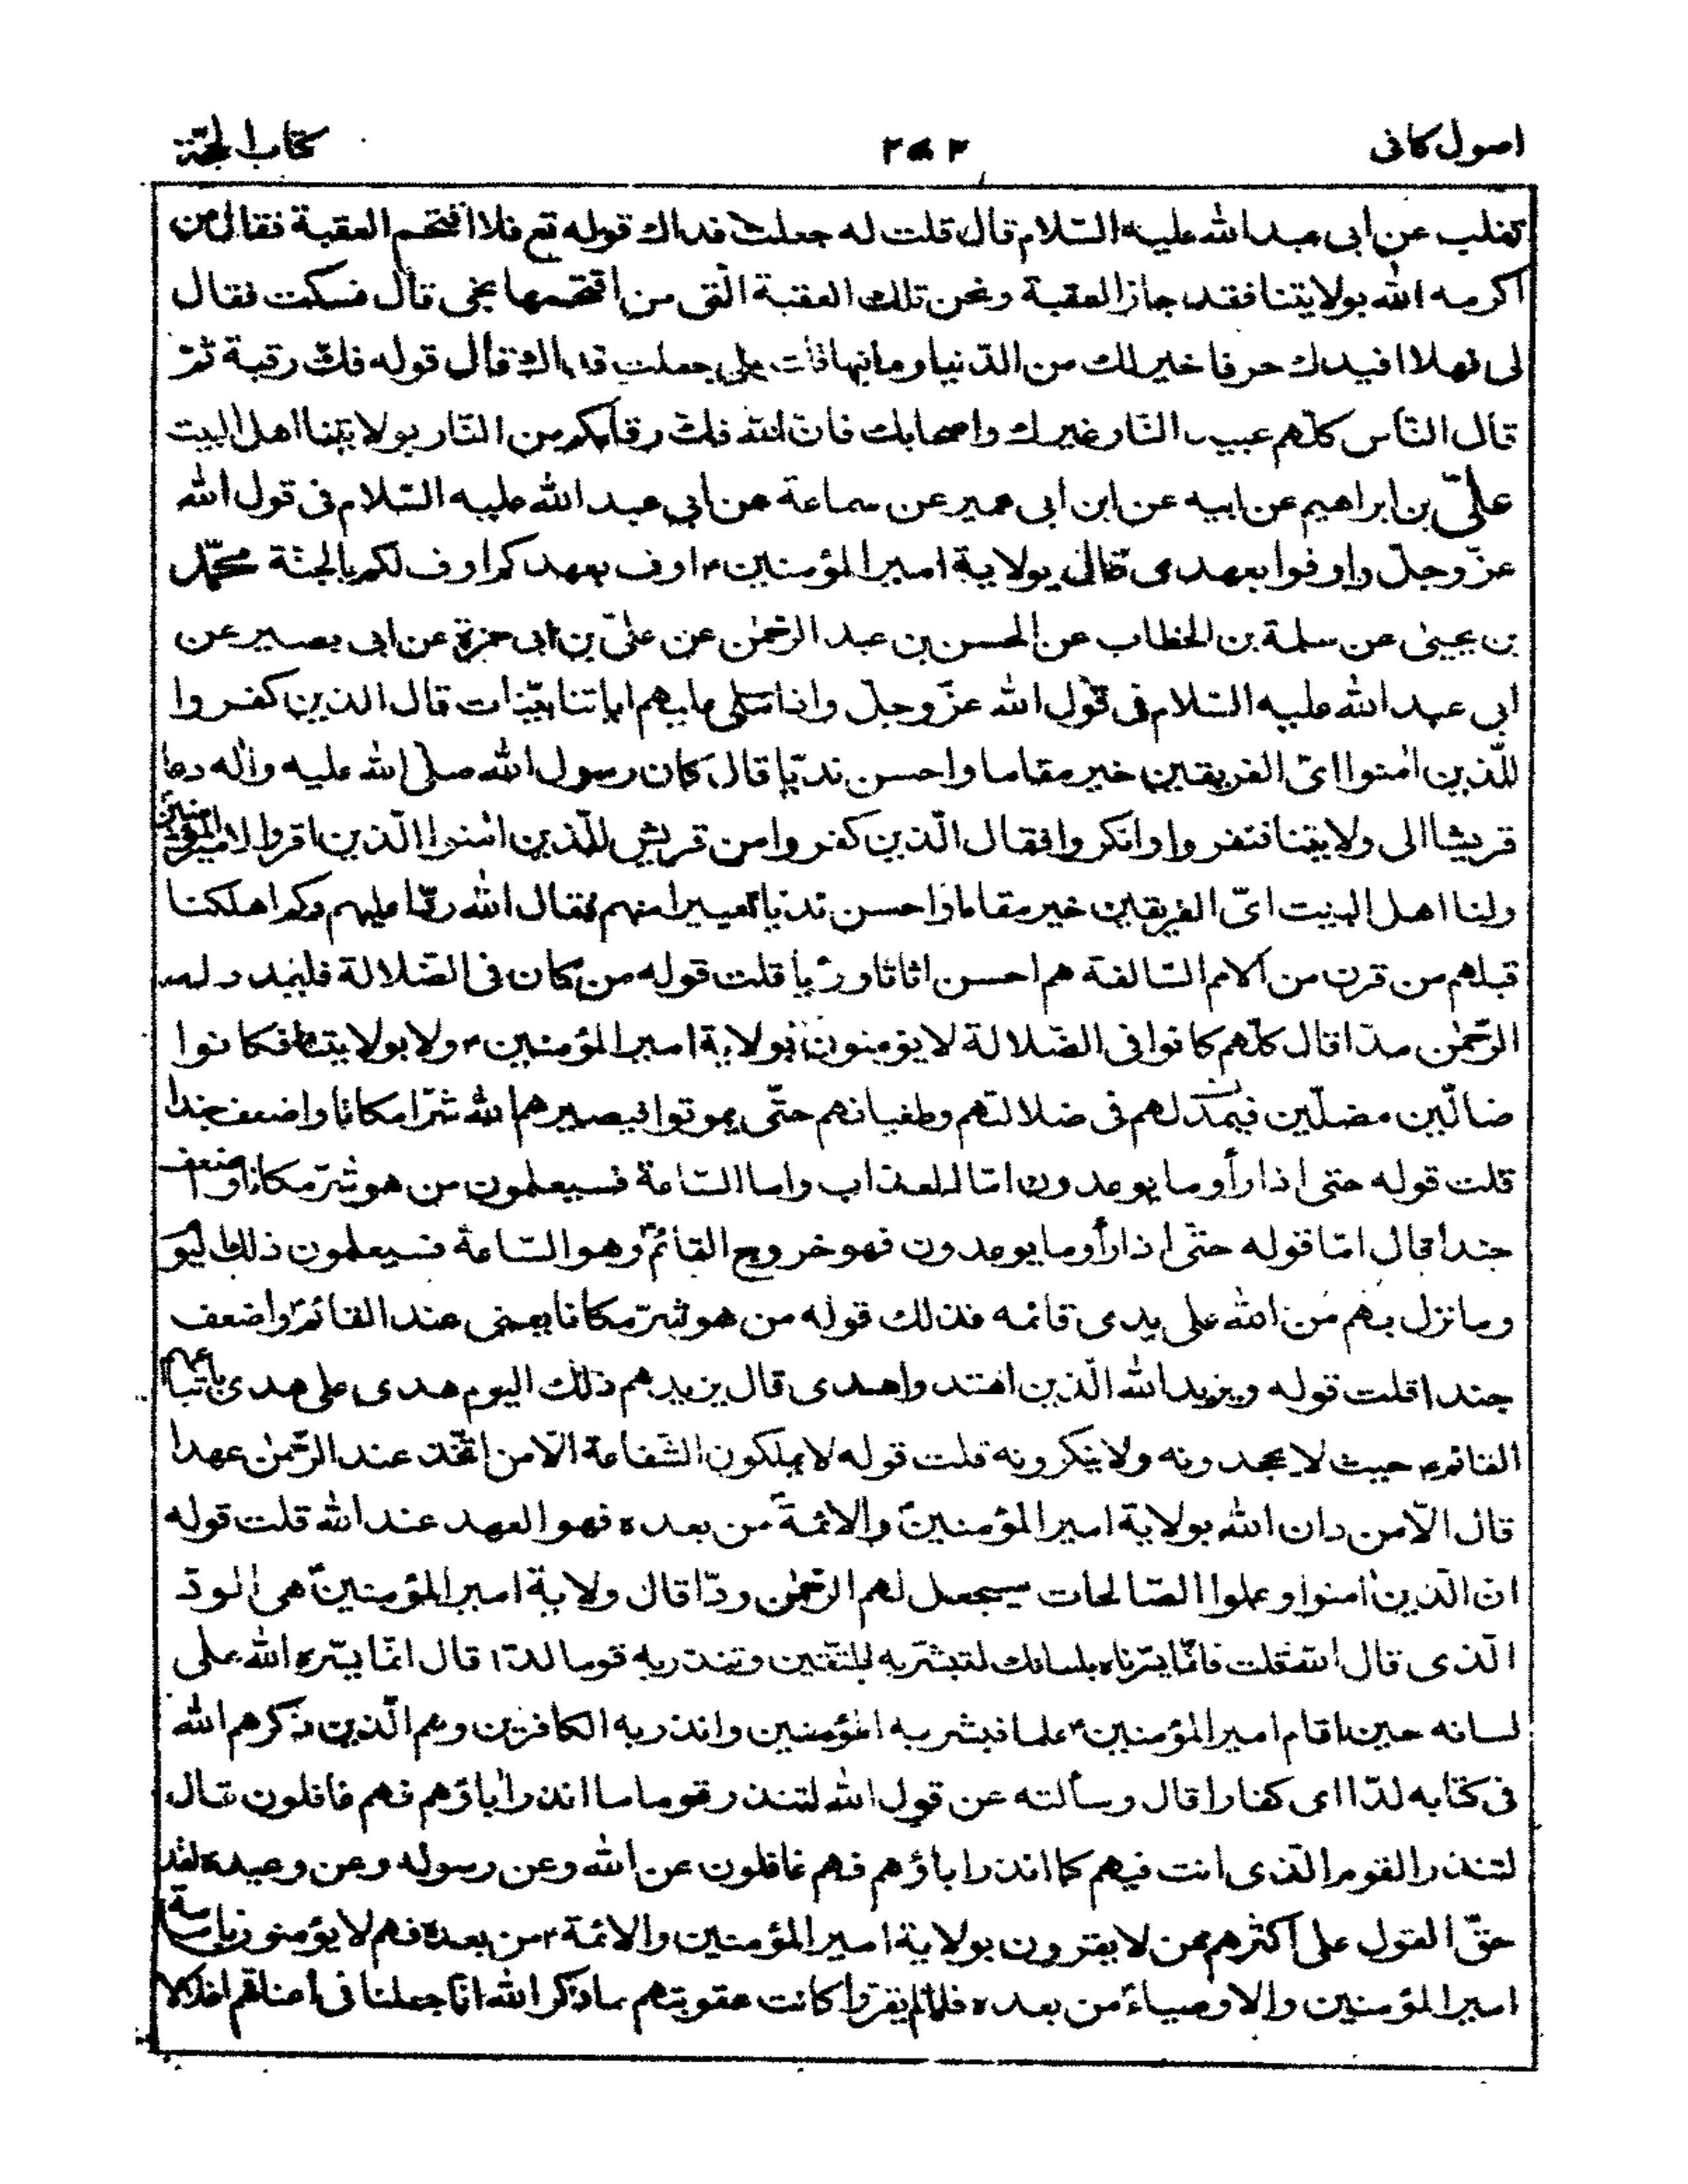 اصول كافى
٢٥٢
كتاب الحجّة
تغلب عن ابى عبد الله عليه السّلام قال قلت له جعلت فداك قوله تع فلا اقتحم العقبة فقال من
اكرمه الله بولايتنا فقد جاز العقبة ونحن تلك العقبة الّتى من اقتحمها نجى قال فسكت فقال
لى فهلا افيدك حرفا خير لك من الدّنيا وما فيها قلت بلى جعلت فداك قال قوله فكّ رقبة ثمّ
قال النّاس كلّهم عبيد النّار غيرك واصحابك فانّ الله فكّ رقابكم من النّار بولايتنا اهل البيت
علىّ بن ابراهيم عن ابيه عن ابن ابى عمير عن سماعة عن ابى عبد الله عليه السّلام فى قول الله
عزّ وجلّ واوفوا بعهدى قال بولاية امير المؤمنين ٢ اوف بعهدكم اوف لكم بالجنّة محمّد
بن يحيىٰ عن سلمة بن الخطاب عن الحسن بن عبد الرّحمٰن عن علىّ بن ابى حمزة عن ابى بصير عن
ابى عبد الله عليه السّلام فى قول الله عزّ وجلّ واذا تتلى عليهم اياتنا بيّنات قال الذين كفروا
للّذين اٰمنوا اىّ الفريقين خير مقاما واحسن نديّا قال كان رسول الله صلّى الله عليه واٰله دعا
قريشا الى ولايتنا فنفروا وانكروا فقال الّذين كفروا من قريش للّذين اٰمنوا الّذين اقروا لامير المؤمنين
ولنا اهل البيت اىّ الفريقين خير مقاما واحسن نديّا تعييرا منهم فقال الله ردّا عليهم وكم اهلكنا
قبلهم من قرن من الامم السّالفة هم احسن اثاثا ورءيا قلت قوله من كان فى الضّلالة فليمدد له
الرّحمٰن مدّا قال كلّهم كانوا فى الضّلالة لا يؤمنون بولاية امير المؤمنين ٢ ولا بولايتنا فكانوا
ضالّين مضلّين فيمدّ لهم فى ضلالتهم وطغيانهم حتّى يموتوا فيصيرهم الله شرّا مكانا واضعف جندا
قلت قوله حتى اذا رأوا ما يوعدون امّا العذاب واما السّاعة فسيعلمون من هو شرّ مكانا واضعف
جندا قال امّا قوله حتّى اذا رأوا ما يوعدون فهو خروج القائم وهو السّاعة فسيعلمون ذلك اليو
وما نزل بهم من الله على يدى قائمه فذلك قوله من هو شرّ مكانا يعنى عند القائم واضعف
جندا قلت قوله ويزيد الله الّذين اهتدوا هدى قال يزيدهم ذلك اليوم هدى على هدى باتّباعهم
القائم حيث لا يجحدونه ولا ينكرونه قلت قوله لا يملكون الشّفاعة الّا من اتّخذ عند الرّحمٰن عهدا
قال الّا من دان الله بولاية امير المؤمنين والائمة من بعده فهو العهد عند الله قلت قوله
ان الّذين اٰمنوا وعملوا الصّالحات سيجعل لهم الرّحمٰن ودّا قال ولاية امير المؤمنين هى الودّ
الّذى قال الله قلت فانّما يسّرناه بلسانك لتبشّر به المتّقين وتنذر به قوما لدّا قال انّما يسّره الله على
لسانه حين اقام امير المؤمنين علما فبشر به المؤمنين وانذر به الكافرين وهم الّذين ذكرهم الله
فى كتابه لدّا اى كفارا قال وسألته عن قول الله لتنذر قوما ما انذر اٰباؤهم فهم غافلون قال
لتنذر القوم الّذى انت فيهم كما انذر اباؤهم فهم غافلون عن الله وعن رسوله وعن وعيده لقد
حقّ القول على اكثرهم ممن لا يقرون بولاية امير المؤمنين والائمة ٢ من بعده فهم لا يؤمنون بامامة
امير المؤمنين والاوصياء من بعده فلمّا لم يقرّوا كانت عقوبتهم ما ذكر الله انّا جعلنا فى اعناقهم اغلالا